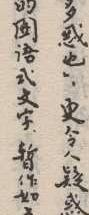 多惑也、更令人疑惑
的国语式文字、暂作如